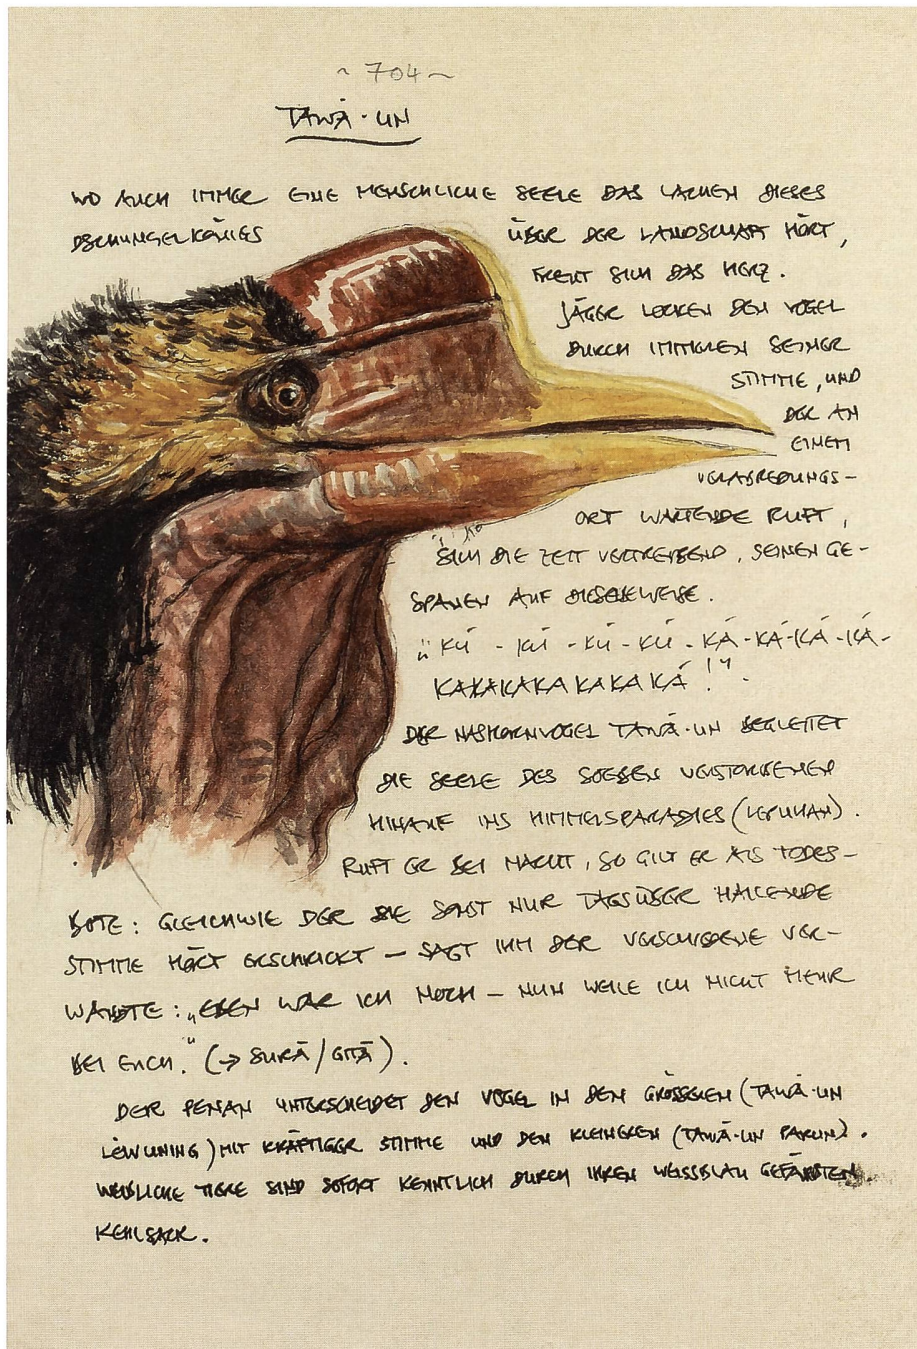 ~ 704 ~
TAWÄ·UN
WO AUCH IMMER EINE MENSCHLICHE SEELE DAS LACHEN DIESES
DSCHUNGELKÖNIGS ÜBER DER LANDSCHAFT HÖRT,
FREUT SICH DAS HERZ.
JÄGER LOCKEN DEN VOGEL
DURCH IMITIEREN SEINER
STIMME, UND
DER AN
EINEM
VERABREDUNGS-
ORT WARTENDE RUFT,
SICH DIE ZEIT VERTREIBEND, SEINEN GE-
SPANEN AUF DIESE WEISE.
"KÚ - KÚ - KÚ - KÚ - KÁ - KÁ-KÁ-KÁ-
KAKAKAKAKAKAKÁ!".
DER NASHORNVOGEL TAWÄ·UN BEGLEITET
DIE SEELE DES SOEBEN VERSTORBENEN
HINAUF INS HIMMELSPARADIES
RUFT ER BEI NACHT, SO GILT ER ALS TODES-
BOTE: GLEICHWIE DER DIE SONST NUR TAGSÜBER HALLENDE
STIMME HÖRT ERSCHRICKT – SAGT IHM DER VERSCHIEDENE VER-
WANDTE: „EBEN WAR ICH NOCH – NUN WEILE ICH NICHT MEHR
BEI EUCH." (→ SUKÄ/GITÄ).
DER PENAN UNTERSCHEIDET DEN VOGEL IN DEN GRÖSSEREN (TAWÄ·UN
LEWUNING) MIT KRÄFTIGER STIMME UND DEN KLEINEREN (TAWÄ·UN PAKUN).
WEIBLICHE TIERE SIND SOFORT KENNTLICH DURCH IHREN WEISSBLAU GEFÄRBTEN
KEHLSACK.